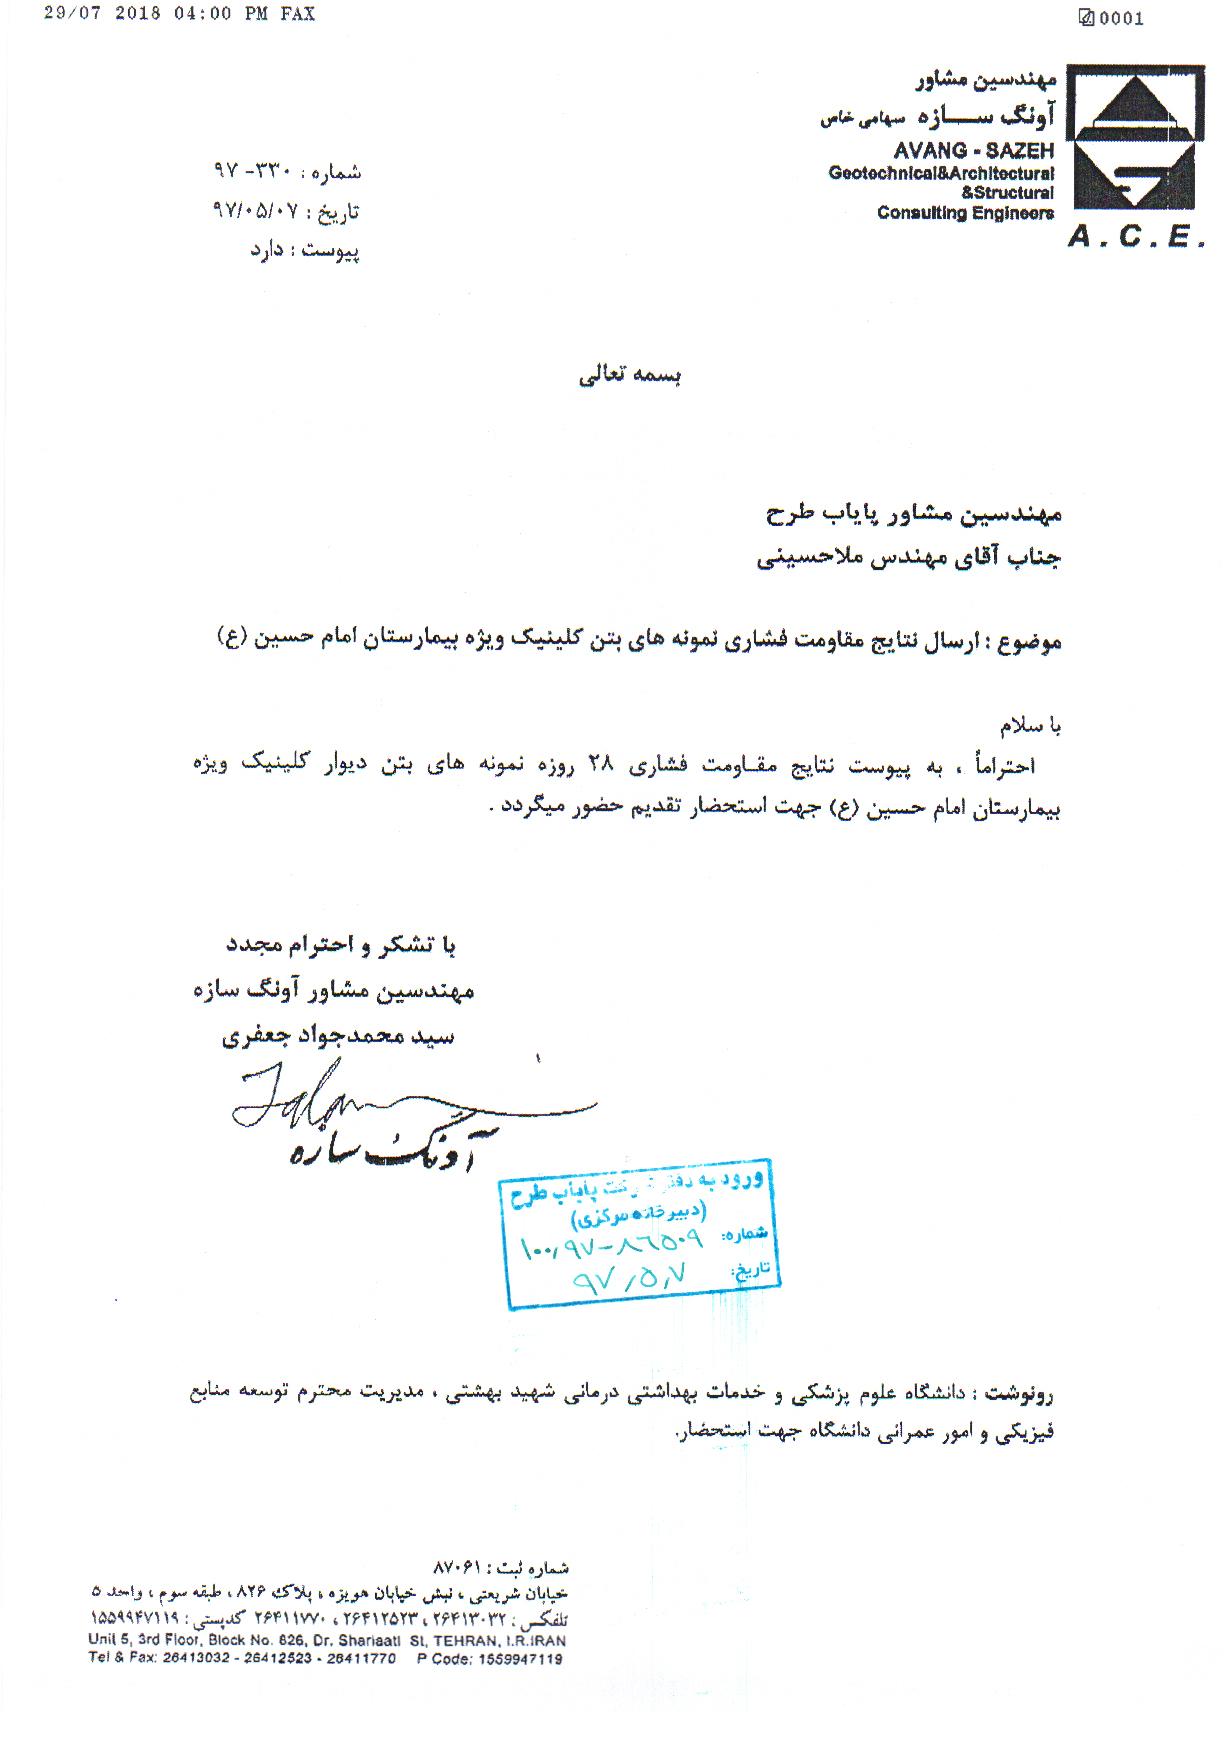 29/07 2018 04:00 PM FAX
0001
مهندسین مشاور
آونگ سازه سهامی خاص
AVANG - SAZEH
Geotechnical&Architectural
&Structural
Consulting Engineers
A.C.E.
شماره : ۳۳۰-۹۷
تاریخ : ۹۷/۰۵/۰۷
پیوست : دارد
بسمه تعالی
مهندسین مشاور پایاب طرح
جناب آقای مهندس ملاحسینی
موضوع : ارسال نتایج مقاومت فشاری نمونه های بتن کلینیک ویژه بیمارستان امام حسین (ع)
با سلام
احتراماً ، به پیوست نتایج مقاومت فشاری ۲۸ روزه نمونه های بتن دیوار کلینیک ویژه
بیمارستان امام حسین (ع) جهت استحضار تقدیم حضور میگردد .
با تشکر و احترام مجدد
مهندسین مشاور آونگ سازه
سید محمدجواد جعفری
آونگ سازه
ورود به دفتر شرکت پایاب طرح
(دبیرخانه مرکزی)
شماره: ۱۰۰٫۹۷-۸۶۵۰۹
تاریخ: ۹۷٫۵٫۷
رونوشت : دانشگاه علوم پزشکی و خدمات بهداشتی درمانی شهید بهشتی ، مدیریت محترم توسعه منابع
فیزیکی و امور عمرانی دانشگاه جهت استحضار.
شماره ثبت : ۸۷۰۶۱
خیابان شریعتی ، نبش خیابان هویزه ، پلاک ۸۲۶ ، طبقه سوم ، واحد ۵
تلفکس : ۲۶۴۱۳۰۳۲ ، ۲۶۴۱۲۵۲۳ ، ۲۶۴۱۱۷۷۰ کدپستی : ۱۵۵۹۹۴۷۱۱۹
Unit 5, 3rd Floor, Block No. 826, Dr. Shariaati St, TEHRAN, I.R.IRAN
Tel & Fax: 26413032 - 26412523 - 26411770 P Code: 1559947119